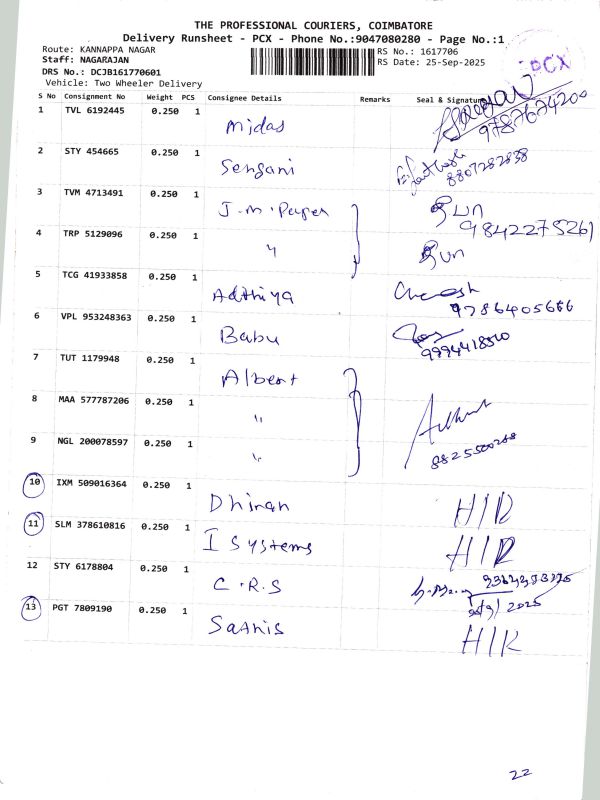 THE PROFESSIONAL COURIERS, COIMBATORE
Delivery Runsheet - PCX - Phone No.:9047080280 - Page No.:1
Route: KANNAPPA NAGAR RS No.: 1617706
Staff: NAGARAJAN RS Date: 25-Sep-2025
DRS No.: DCJB161770601
Vehicle: Two Wheeler Delivery
PCX
S No Consignment No Weight PCS Consignee Details Remarks Seal & Signature
1 TVL 6192445 0.250 1 Midas 9787674200
2 STY 454665 0.250 1 Sengani 8807282838
3 TVM 4713491 0.250 1 J.M.Paper 9842275261
4 TRP 5129096 0.250 1 "
5 TCG 41933858 0.250 1 Adthiya 9786405666
6 VPL 953248363 0.250 1 Babu 9994418500
7 TUT 1179948 0.250 1 Albert
8 MAA 577787206 0.250 1 "
9 NGL 200078597 0.250 1 " 8825500268
10 IXM 509016364 0.250 1 Dhiran H/R
11 SLM 378610816 0.250 1 I Systems H/R
12 STY 6178804 0.250 1 C.R.S 2025
13 PGT 7809190 0.250 1 Saanis H/R
22